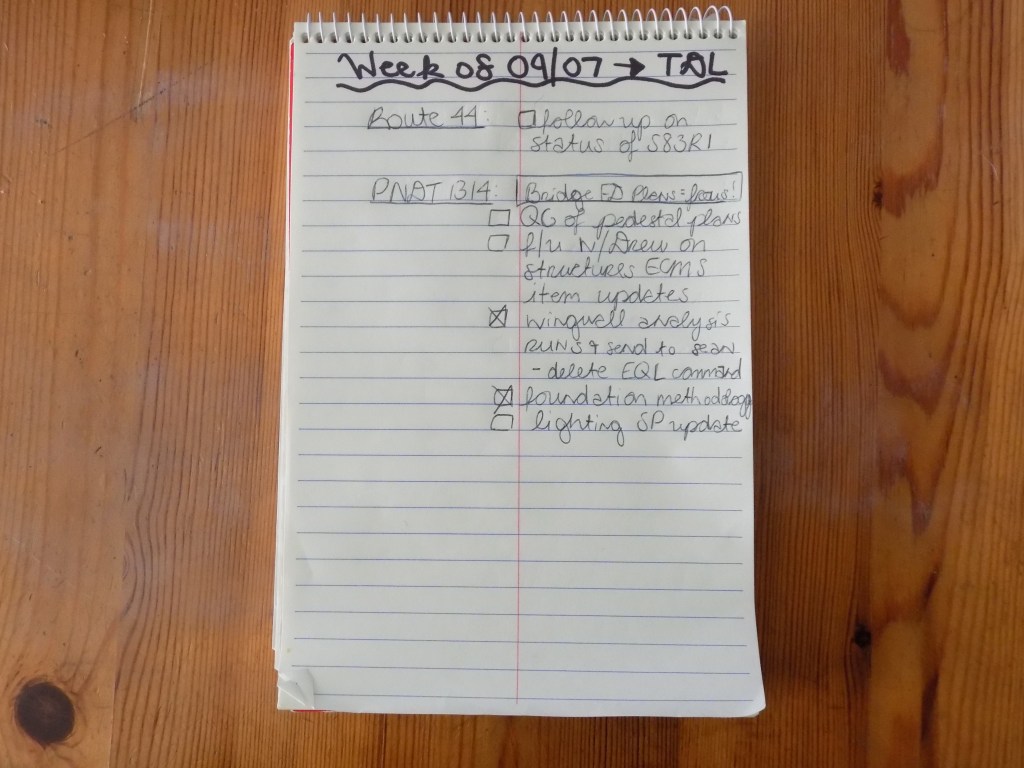 Week of 09/07 → TAL
Route 44: ☐ follow up on
status of S83R1
PNAT 1314: Bridge ED Plans = focus!
☐ QC of pedestal plans
☐ f/u N/Drew on
structures ECMS
item updates
☒ wingwall analysis
RUNS + send to sean
- delete EQL command
☒ foundation methodology
☐ lighting SP update